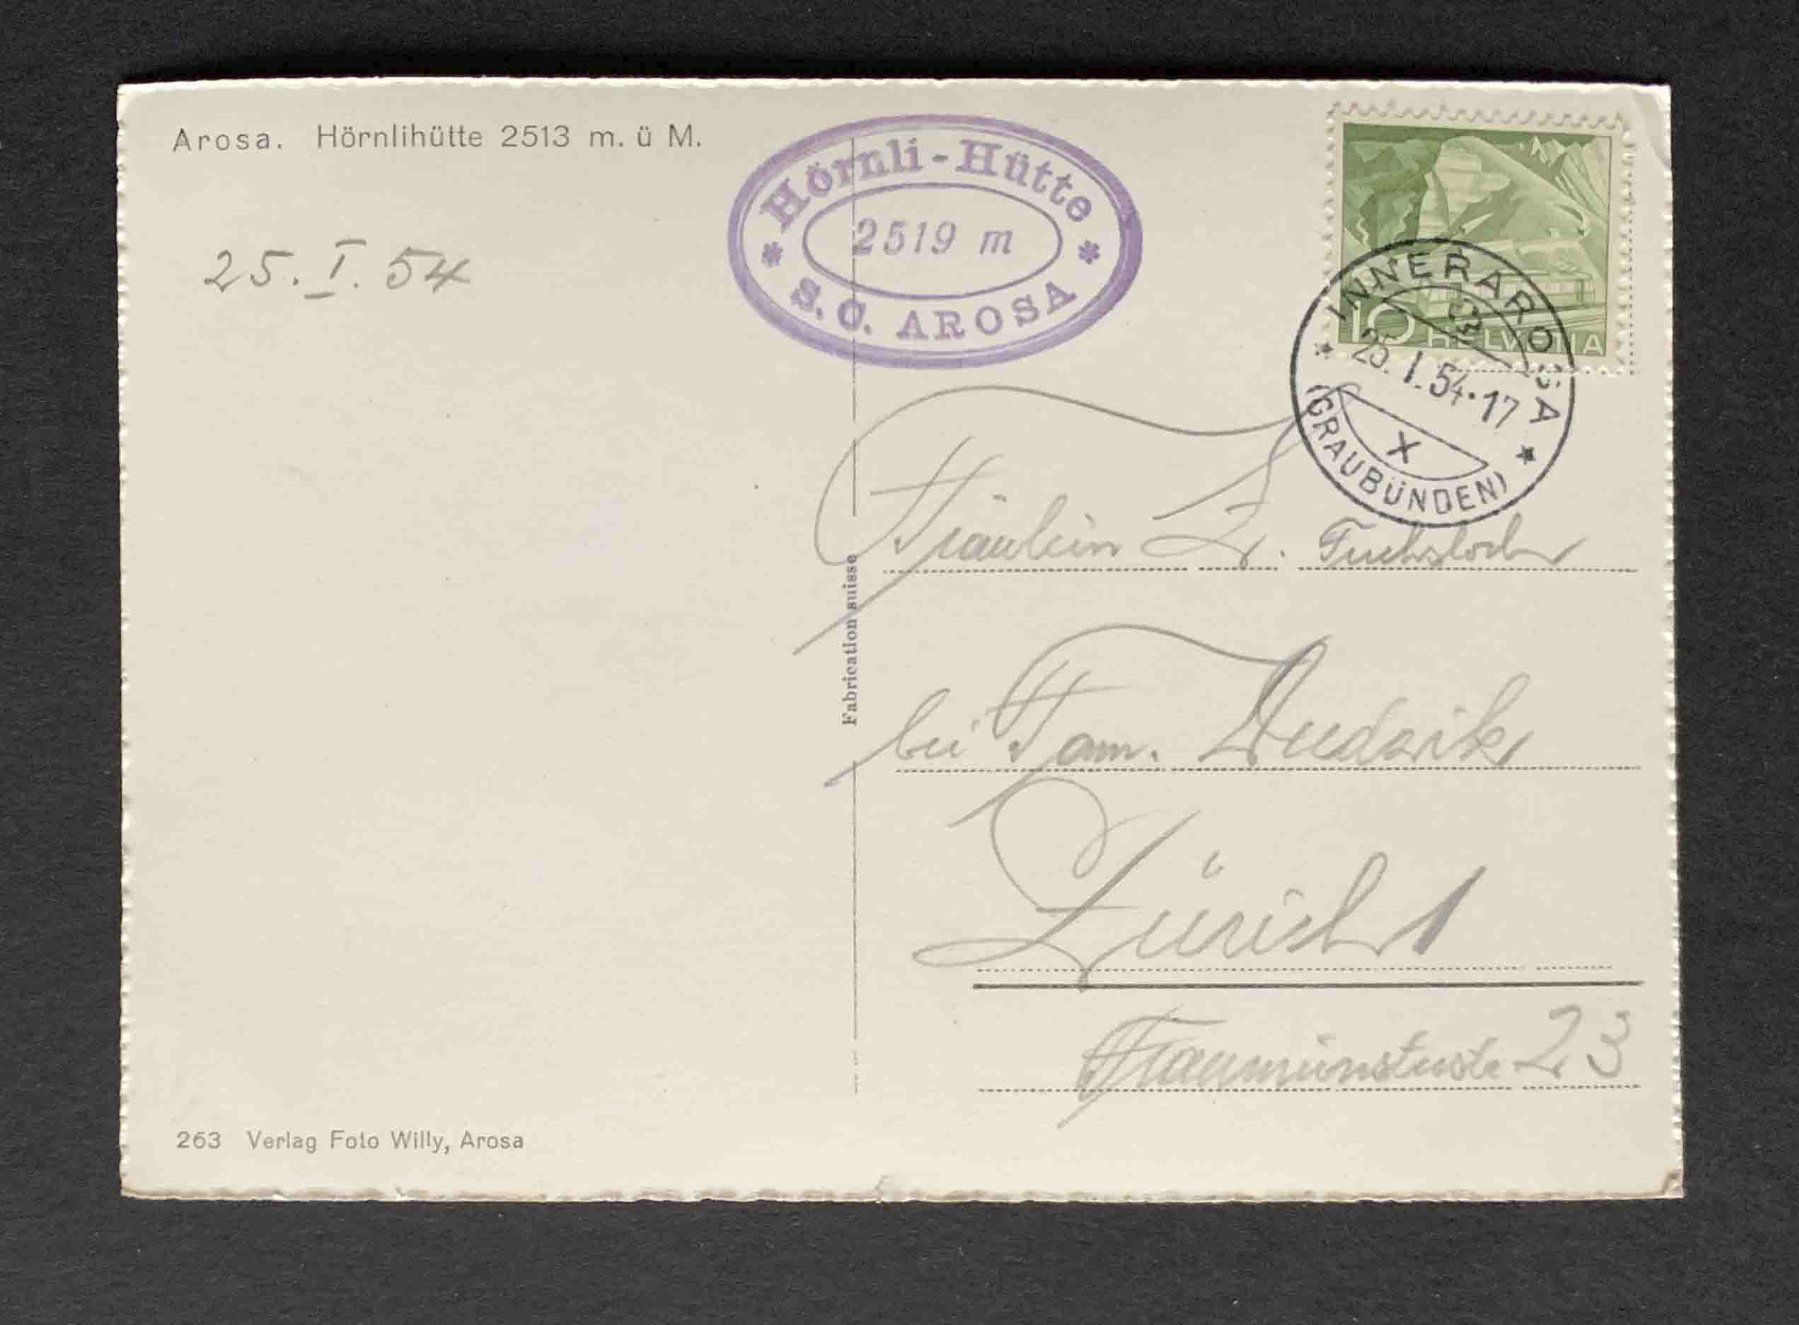 Arosa. Hörnlihütte 2513 m. ü M.
Hörnli-Hütte
2519 m
S.C. AROSA
10 HELVETIA
INNERAROSA
25.I.54-17
X
(GRAUBÜNDEN)
25.I.54
Fräulein L. Fuchsloch
bei Fam.
Zürich 1
Fraumünsterstr. 23
Fabrication suisse
263 Verlag Foto Willy, Arosa